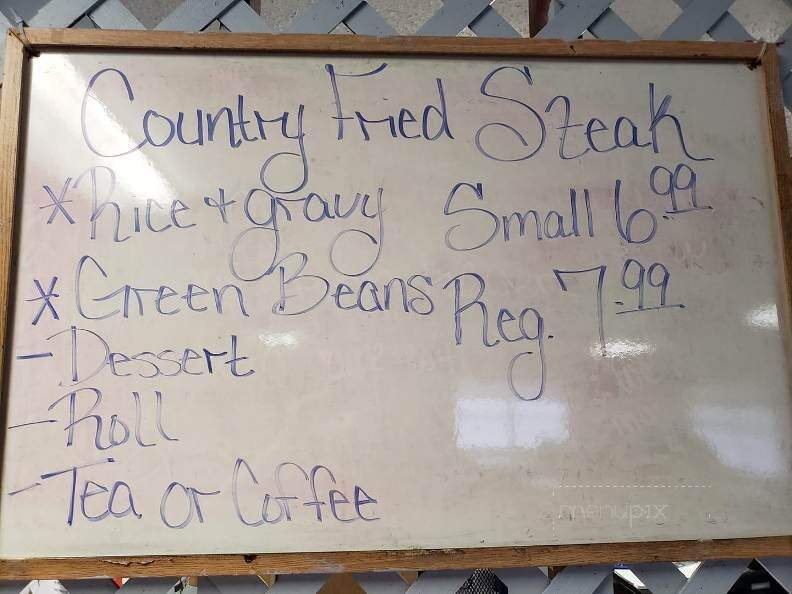 Country Fried Steak
* Rice + gravy Small 6.99
* Green Beans Reg. 7.99
- Dessert
- Roll
- Tea or Coffee
menupix